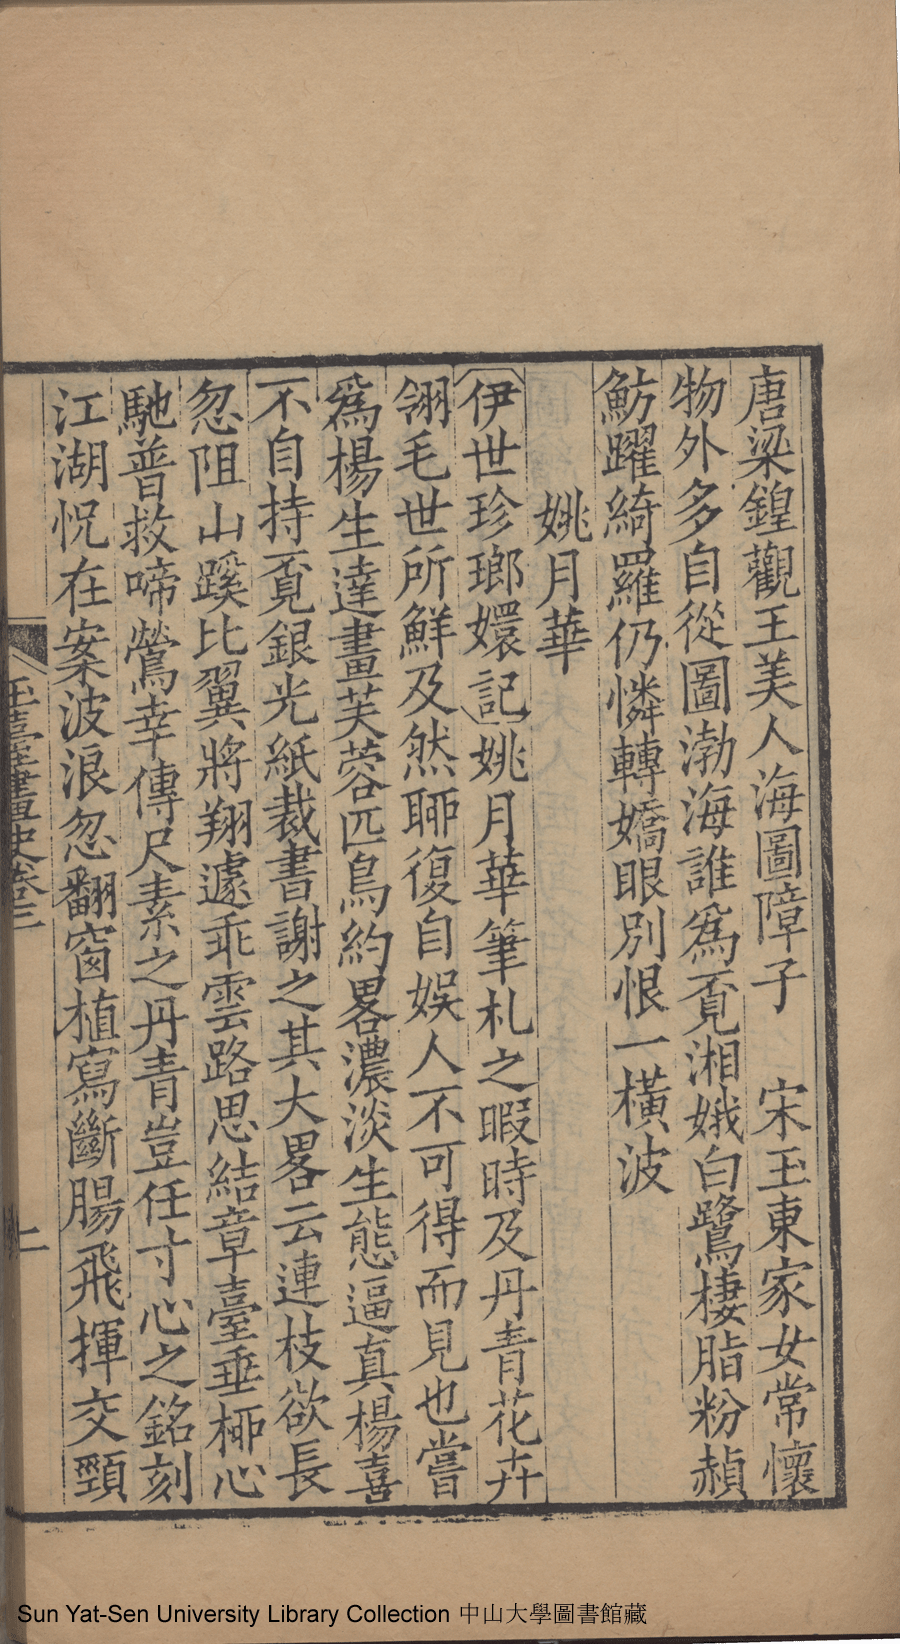 唐梁鍠觀王美人海圖障子　宋玉東家女常懷
物外多自從圖渤海誰爲覔湘娥白鷺棲脂粉赬
魴躍綺羅仍憐轉嬌眼別恨一橫波
姚月華
伊世珍瑯嬛記姚月華筆札之暇時及丹青花卉
翎毛世所鮮及然聊復自娛人不可得而見也嘗
爲楊生達畫芙蓉匹鳥約畧濃淡生態逼真楊喜
不自持覔銀光紙裁書謝之其大畧云連枝欲長
忽阻山蹊比翼將翔遽乖雲路思結章臺垂栁心
馳普救啼鶯幸傳尺素之丹青豈任寸心之銘刻
江湖怳在案波浪忽翻窗植寫斷腸飛揮交頸
玉臺畫史卷三
二
Sun Yat-Sen University Library Collection 中山大學圖書館藏